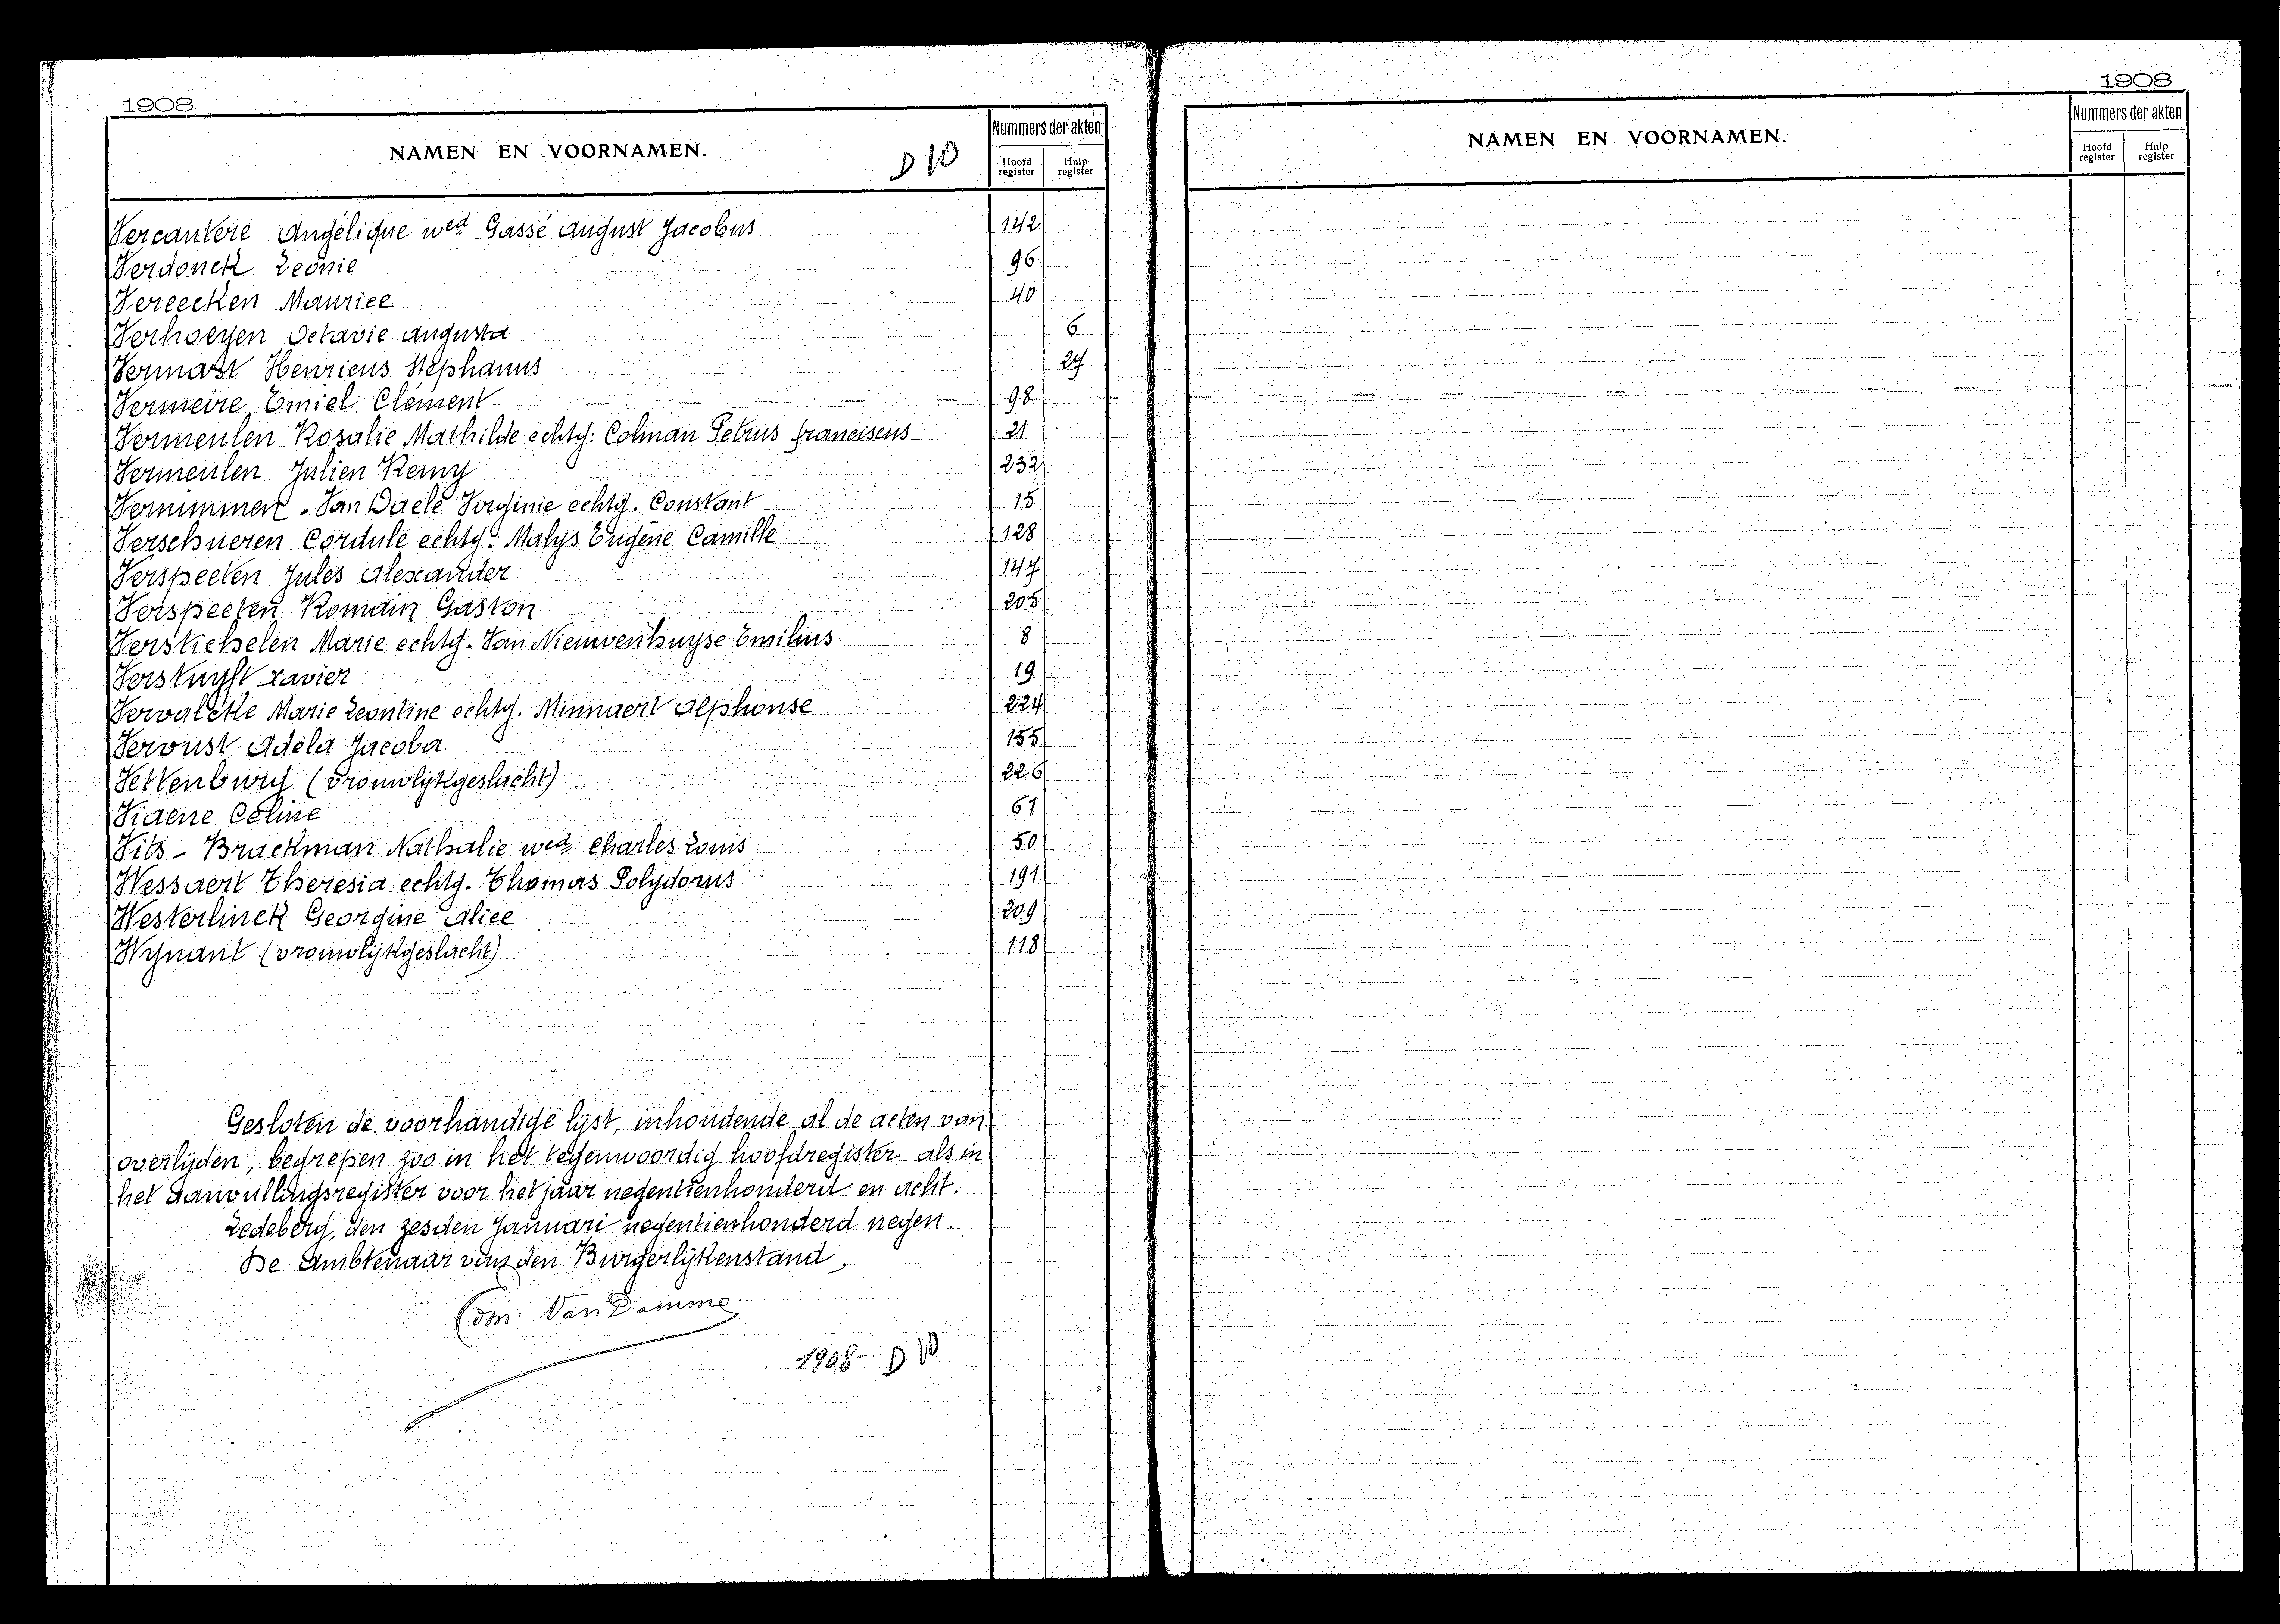 1908
NAMEN EN VOORNAMEN. D 10 Nummers der akten
Hoofd register Hulp register
Vercautere Angélique wed. Gassé August Jacobus 142
Verdonck Leonie 96
Vereecken Maurice 40
Verhoeyen Octavie Augusta 6
Vermast Henricus Stephanus 27
Vermeire Emiel Clément 98
Vermeulen Rosalie Mathilde echtg: Colman Petrus franciscus 21
Vermeulen Julien Remy 232
Vernimmen - Van Daele Virginie echtg. Constant 15
Verschueren Cordule echtg. Malys Eugène Camille 128
Verspeeten Jules Alexander 147
Verspeeten Romain Gaston 205
Verstichelen Marie echtg. Van Nieuwenhuyse Emilius 8
Verstuyft Xavier 19
Vervalcke Marie Leontine echtg. Minnaert Alphonse 224
Vervust Adela Jacoba 155
Vettenburg (vrouwlijkgeslacht) 226
Viaene Céline 61
Vits - Brackman Nathalie wed. Charles Louis 50
Wessaert Theresia echtg. Thomas Polydorus 191
Westerlinck Georgine Alice 209
Wynant (vrouwlijkgeslacht) 118
Gesloten de voorhandige lijst, inhoudende al de acten van
overlijden, begrepen zoo in het tegenwoordig hoofdregister als in
het aanvullingsregister voor het jaar negentienhonderd en acht.
Ledeberg, den zesden Januari negentienhonderd negen.
De Ambtenaar van den Burgerlijkenstand,
Van Damme
1908- D 10
1908
NAMEN EN VOORNAMEN. Nummers der akten
Hoofd register Hulp register